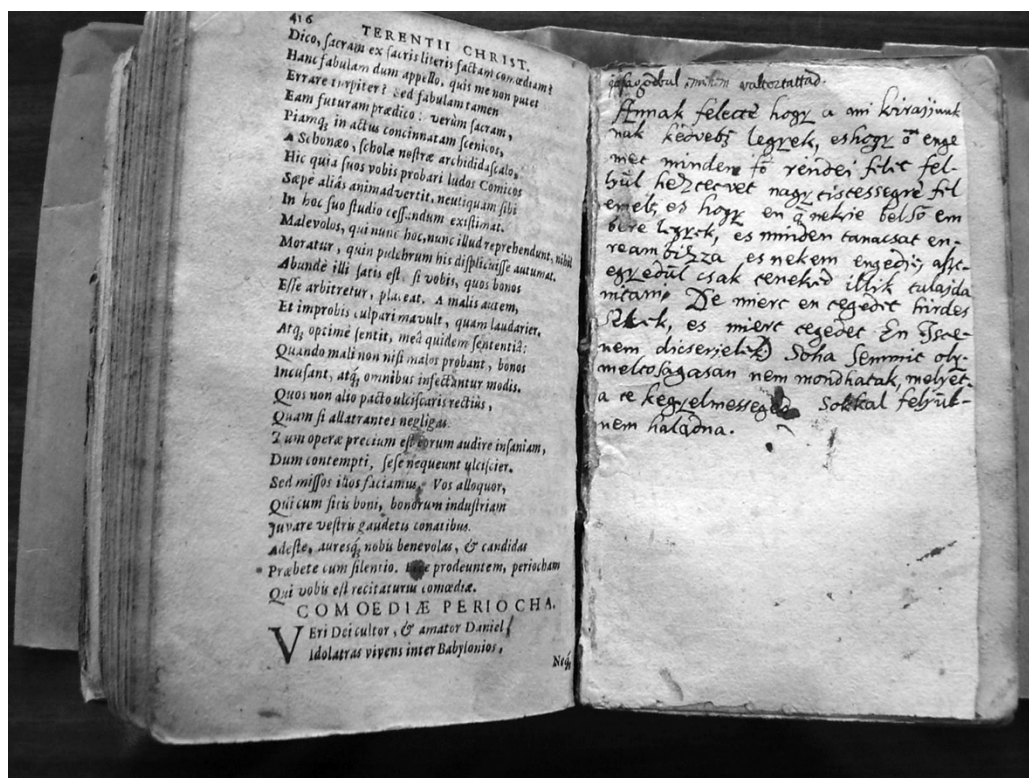 416
TERENTII CHRIST.
Dico, sacram ex sacris literis factam comœdiam?
Hanc fabulam dum appello, quis me non putet
Errare turpiter? Sed fabulam tamen
Eam futuram prædico: verùm sacram,
Piamq́; in actus concinnatam scenicos,
A Schonæo, scholæ nostræ archididascalo.
Hic quia suos vobis probari ludos Comicos
Sæpe aliâs animadvertit, neutiquam sibi
In hoc suo studio cessandum existimat.
Malevolos, qui nunc hoc, nunc illud reprehendunt, nihil
Moratur, quin pulchrum his displicuisse autumat.
Abundè illi satis est, si vobis, quos bonos
Esse arbitretur, placeat. A malis autem,
Et improbis culpari mavult, quam laudarier.
Atq́; optimè sentit, meâ quidem sententiâ:
Quando mali non nisi malos probant, bonos
Incusant, atq́; omnibus insectantur modis.
Quos non alto pacto ulciscaris rectiùs,
Quam si allatrantes negligas.
Tum operæ precium est eorum audire insaniam,
Dum contempti, sese nequeunt ulciscier.
Sed missos illos faciamus. Vos alloquor,
Qui cum sitis boni, bonorum industriam
Juvare vestris gaudetis conatibus.
Adeste, auresq́; nobis benevolas, & candidas
Præbete cum silentio. prodeuntem, periocham
Qui vobis est recitaturus comœdiæ.
COMOEDIÆ PERIOCHA.
VEri Dei cultor, & amator Daniel,
Idolatras vivens inter Babylonios,
Neq́;
valtoztattad.
Annak felecte hogy a mi kirajjunk
nak kedvebz legyek, es hogy ō enge
met minden fö rendei filic fel-
hyul heztecvet nagy tistessegre fil
emelt, es hogy en q̄nekie belsō em
bere legyek, es minden tanacsat en-
ream bizza es nekem engedij, azt
egyedūl csak tenekad illik tulajda
nitani. De miert en tegedet hirdes
selek, es miert tegedet En Iste-
nem dicserjelek? Soha semmit oly
meltosagasan nem mondhatak, melyet
a te kegyelmesseged Sokkal felyūl-
nem haladna.